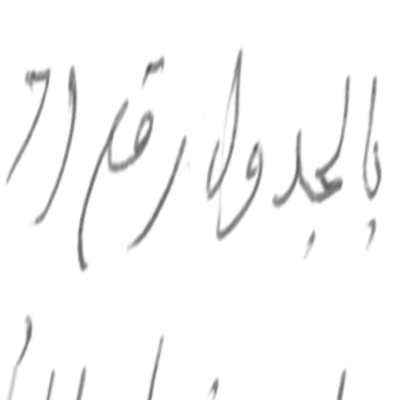 بالجدول رقم (٦